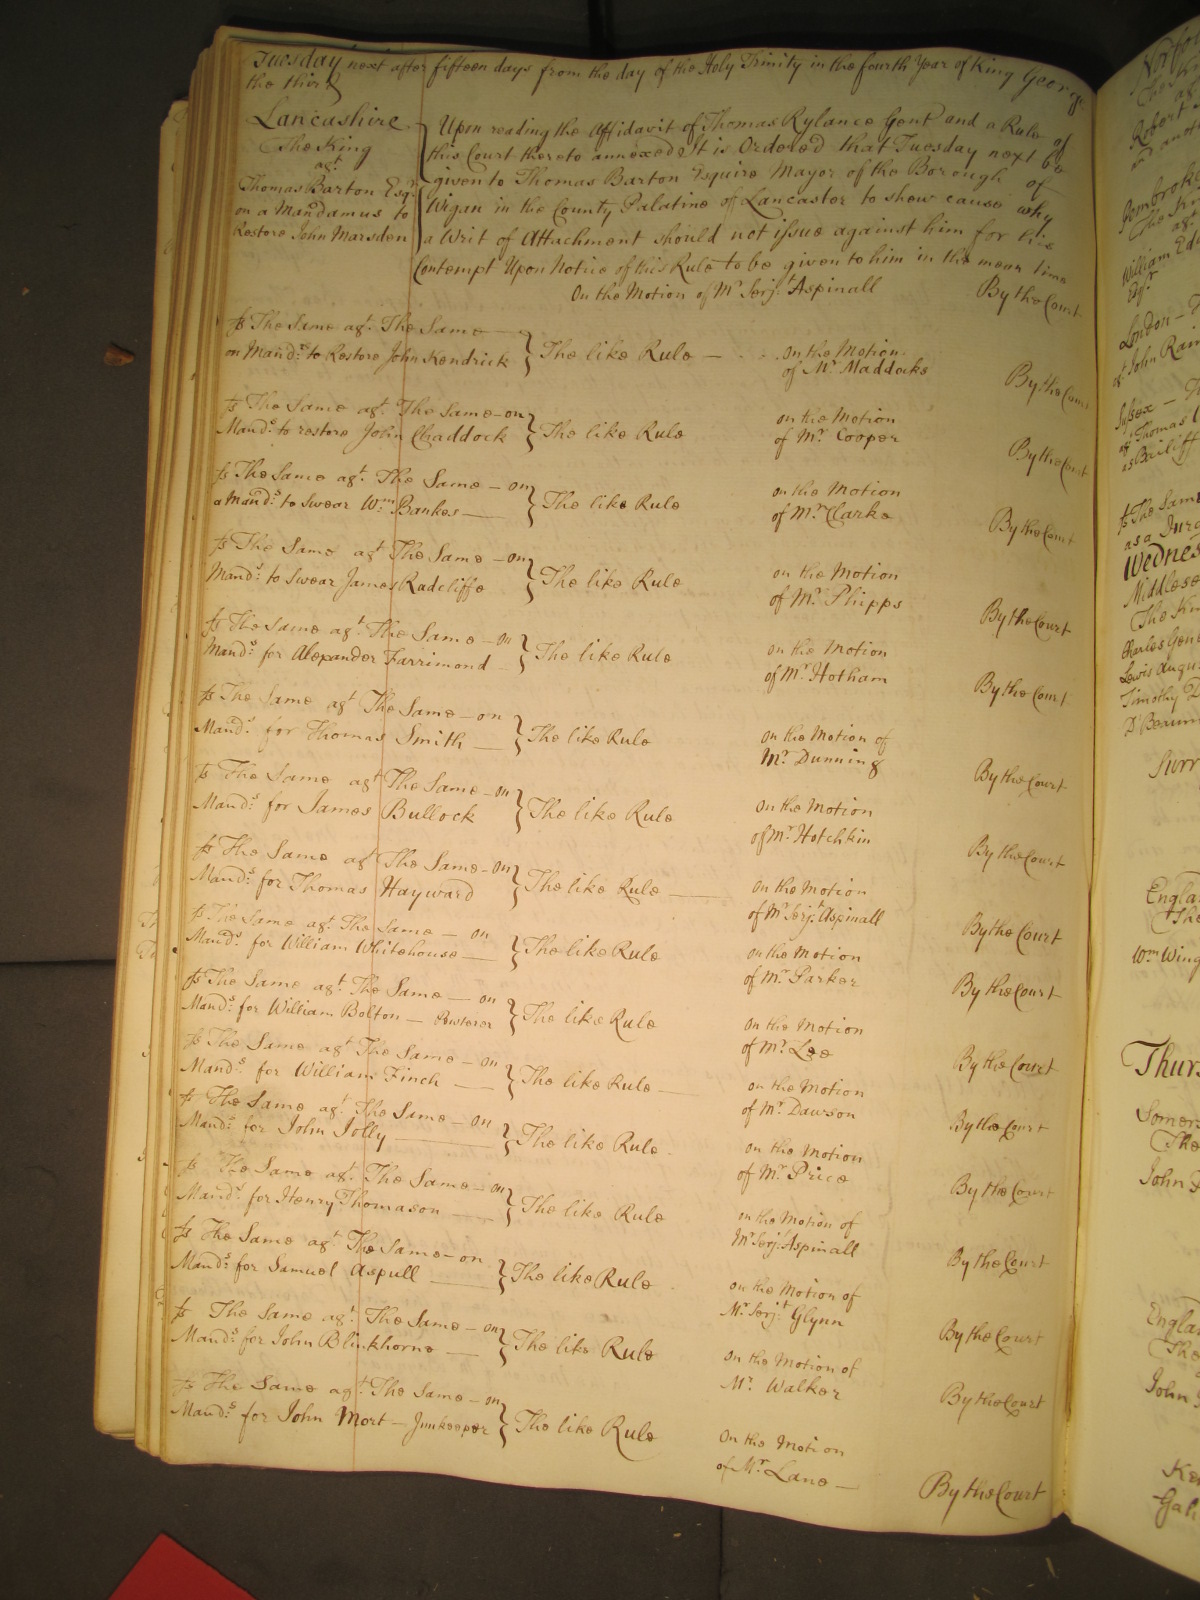 Tuesday next after fifteen days from the day of the Holy Trinity in the fourth Year of King George
the third
Lancashire
The King
agt.
Thomas Barton Esqr.
on a Mandamus to
Restore John Marsden
Upon reading the Affidavit of Thomas Rylance Gent and a Rule of
this Court thereto annexed It is Ordered that Tuesday next be
given to Thomas Barton Esquire Mayor of the Borough of
Wigan in the County Palatine of Lancaster to shew cause why
a Writ of Attachment should not issue against him for his
Contempt Upon Notice of this Rule to be given to him in the mean time
On the Motion of Mr. Serjt. Aspinall By the Court
fs The Same agt. The Same
on Mands. to Restore John Kendrick The like Rule on the Motion
of Mr. Maddocks By the Court
fs The Same agt. The Same on
Mands. to restore John Chaddock The like Rule on the Motion
of Mr. Cooper By the Court
fs The Same agt. The Same on
a Mands. to Swear Wm. Bankes The like Rule on the Motion
of Mr. Clarke By the Court
fs The Same agt The Same on
Mands. to Swear James Radcliffe The like Rule on the Motion
of Mr. Phipps By the Court
fs The Same agt. The Same on
Mands. for Alexander Farrimond The like Rule on the Motion
of Mr. Hotham By the Court
fs The Same agt The Same on
Mands. for Thomas Smith The like Rule on the Motion of
Mr. Dunning By the Court
fs The Same agt The Same on
Mands. for James Bullock The like Rule on the Motion
of Mr. Hotchkin By the Court
fs The Same agt The Same on
Mands. for Thomas Hayward The like Rule on the Motion
of Mr. Serjt. Aspinall By the Court
fs The Same agt. The Same on
Mands. for William Whitehouse The like Rule on the Motion
of Mr. Parker By the Court
fs The Same agt. The Same on
Mands. for William Bolton Pewterer The like Rule on the Motion
of Mr. Lee By the Court
fs The Same agt The Same on
Mands. for William Finch The like Rule on the Motion
of Mr. Dawson By the Court
fs The Same agt. The Same on
Mands. for John Jolly The like Rule on the Motion
of Mr. Price By the Court
fs The Same agt. The Same on
Mands. for Henry Thomason The like Rule on the Motion of
Mr. Serjt. Aspinall By the Court
fs The Same agt The Same on
Mands. for Samuel Aspull The like Rule on the Motion of
Mr. Serjt Glynn By the Court
fs The Same agt. The Same on
Mands. for John Blinkhorne The like Rule on the Motion of
Mr. Walker By the Court
fs The Same agt. The Same on
Mands. for John Mort Innkeeper The like Rule On the Motion
of Mr. Lane By the Court
Robert
London
agt. John
Sussex
agt. Thomas
as Bailiff
fs The Same
as a
Middlesex
Charles
Timothy
Wm Wing
John
John